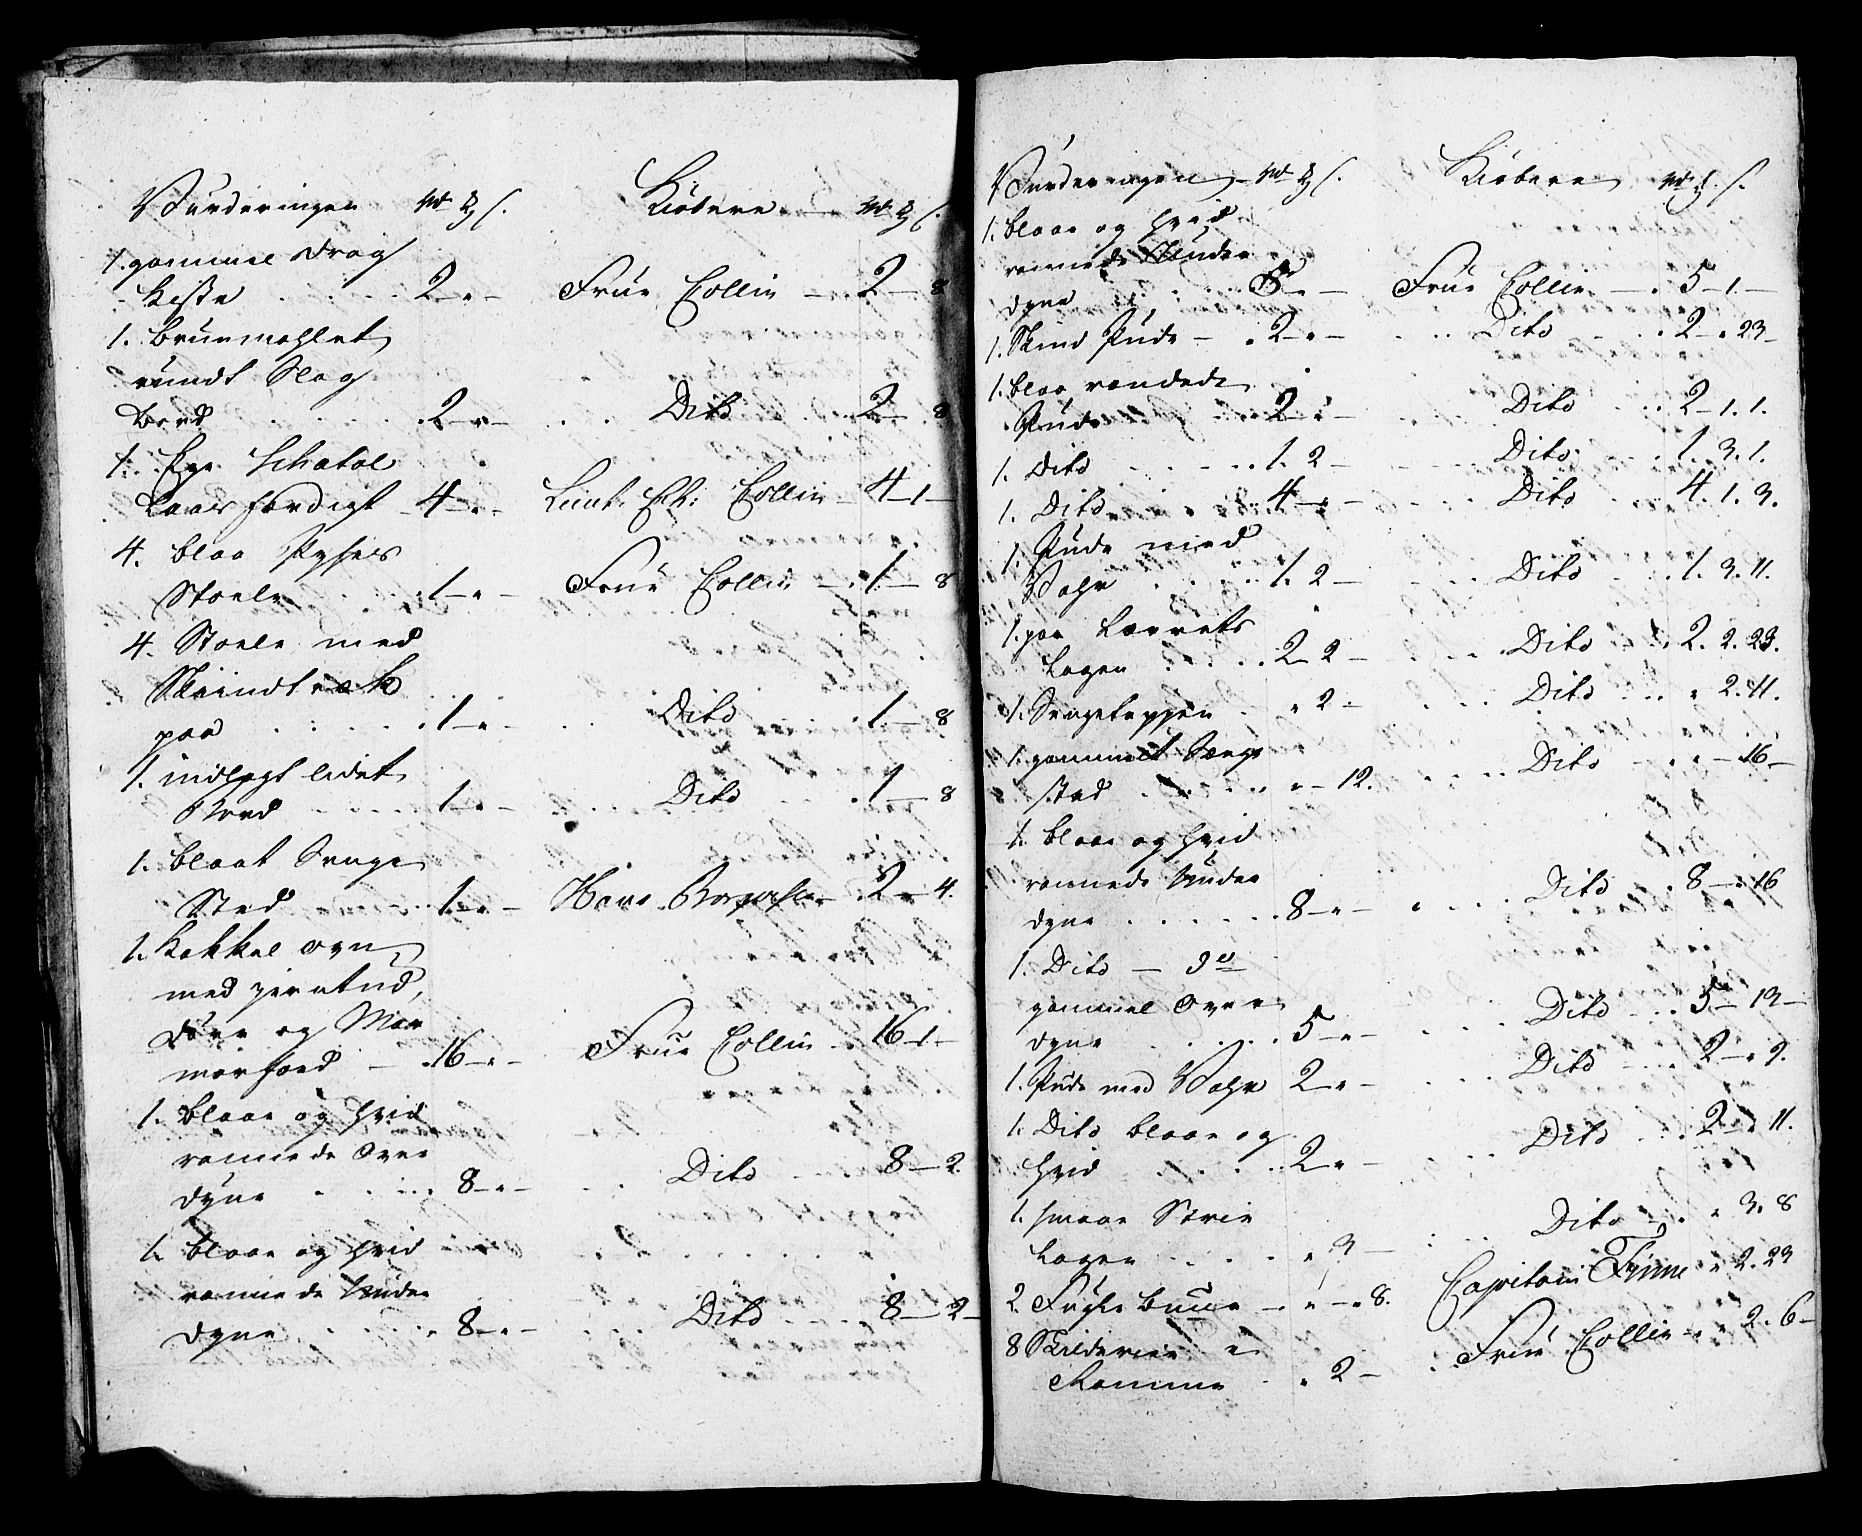 Vurderingen Rd ℔ s. Kiøbere Rd ℔ s.
1. gammel Drag
Kiste 2 - " - Frue Collin - 2 - 8
1. Bruunmahlet
rundt Slag
Bord 2 - " - Dito 2 - 8
1. Ege Schatol
Laas færdigt 4 - " - Lieut: Collin - 4 - 1 -
4. blaa
Stoele 1 - " - Frue Collin - 1 - 8
4. Stoele med
Skindtræk
paa 1 - " - Dito 1 - 8
1. indlagt lidet
Bord 1 - " - Dito 1 - 8
1. blaat Senge
Sted 1 - " - Hans 2 - 4.
1. Kakkel Ovn
med
Dörr og
16 - " - Frue Collin 16 - 1 -
1. blaae og hvid
rannede Over
dyne 8 - " - Dito 8 - 2
1. blaae og hvid
rannede Under
dyne 8 - " - Dito 8 - 2 -
Vurderingen Rd ℔ s. Kiøbere Rd ℔ s.
1. blaae og hvid
rannede Under
dyne - " - Frue Collin - 5 - 1 -
1. Skind Pude - 2 - " - Dito 2 - " 23 -
1. blaa randede
Pude 2 - " - Dito 2 - 1. 1.
1. Dito 1. 2 - Dito 1. 3. 1.
1. Dito 4 - " - Dito 4. 1. 3.
1. Pude med
Vahr 1. 2 - Dito 1. 3. 11.
1. par Lærrets
Lagen 2 - 2 - Dito 2. 2. 23.
1. Sengeteppen " 2 - Dito " 2. 11.
1. gammelt Senge
sted " - 12. Dito " - 16 -
1. blaae og hvid
rannede Under
dyne 8 - " - Dito 8 - " 16
1. Dito -
gammel Over
dyne 5 - " - Dito 5 - 13 -
1. Pude med Vahr 2 - " - Dito 2 - " 9.
1. Dito blaae og
hvid 2 - " - Dito 2 - " 11.
1. smaae Strie
Lagen " 3 - Dito " 3. 8
2. Fugle buure " - " 8. Capitain Finne " 2. 23
8 Skilderier
Ramme " 2 - Frue Collin - " 2. 6 -